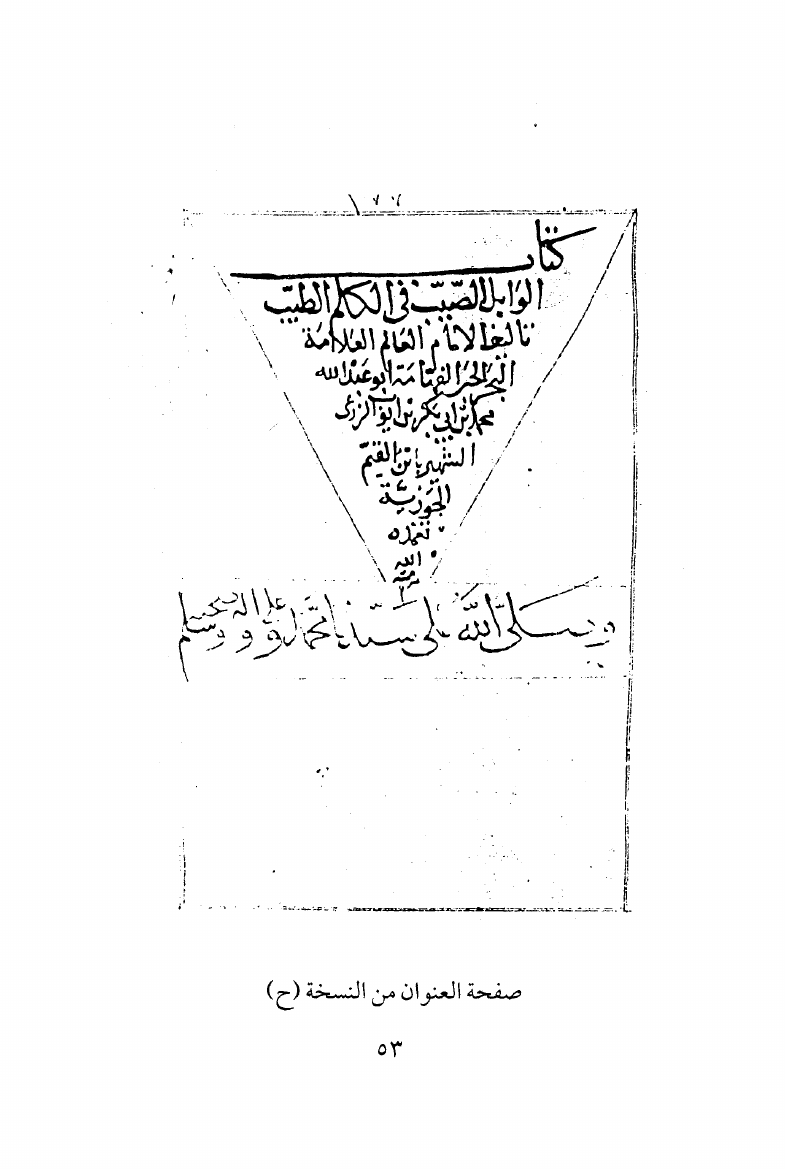 كتاب
الوابل الصيّب في الكلم الطيّب
تاليف الامام العالم العلامة
البحر الحبر الفهامة ابو عبد الله
محمد ابن ابي بكر بن ايوب الزرعي
الشهير بابن القيّم
الجوزيّة
تغمده
الله
برحمته
وصلى الله على سيدنا محمد وعلى اله وصحبه وسلم
صفحة العنوان من النسخة (ح)
٥٣